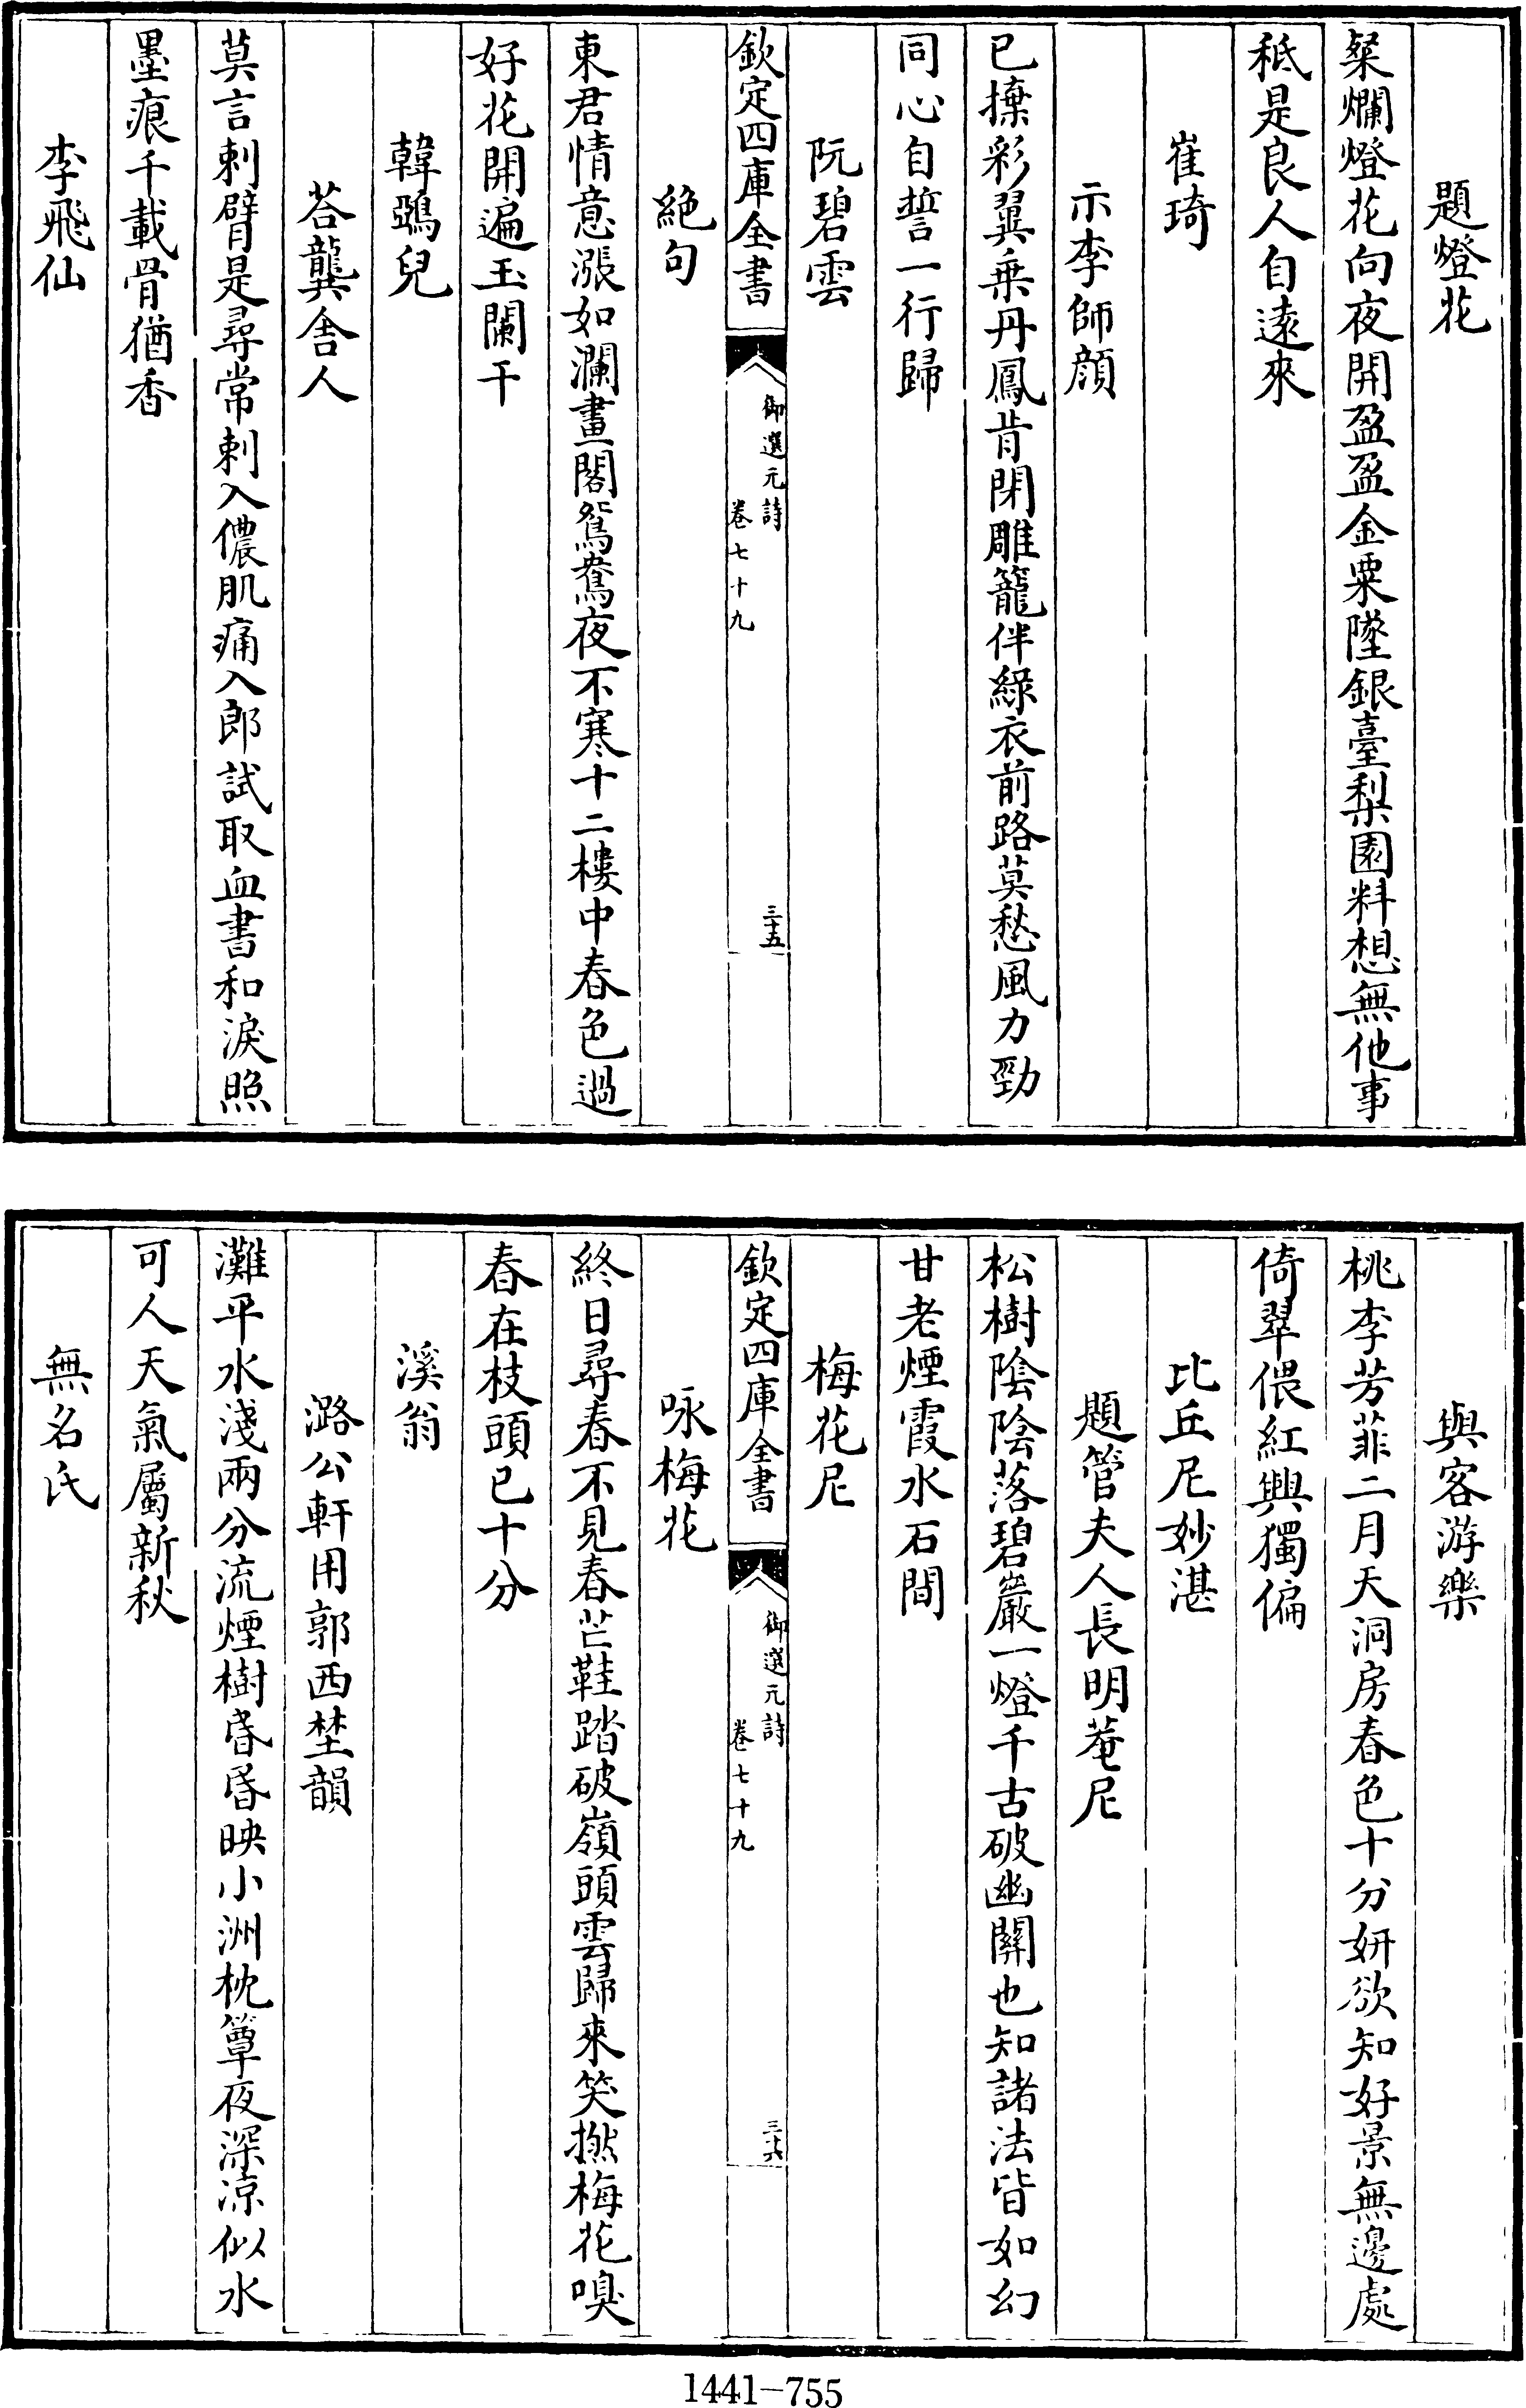 題燈花
粲爛燈花向夜開盈盈金粟墜銀臺梨園料想無他事
秪是良人自遠來
崔琦
示李師顔
已擽彩翼乗丹鳳肯閉雕籠伴綠衣前路莫愁風力勁
同心自誓一行歸
阮碧雲
欽定四庫全書
御選元詩
卷七十九
三十五
絶句
東君情意漲如瀾畫閣鴛鴦夜不寒十二樓中春色過
好花開遍玉闌干
韓鵶兒
荅龔舎人
莫言刺臂是尋常刺入儂肌痛入郎試取血書和淚照
墨痕千載骨猶香
李飛仙
與客游樂
桃李芳菲二月天洞房春色十分妍欲知好景無邊處
倚翠偎紅興獨偏
比丘尼妙湛
題管夫人長明菴尼
松樹陰陰落碧巖一燈千古破幽關也知諸法皆如幻
甘老煙霞水石間
梅花尼
欽定四庫全書
御選元詩
卷七十九
三十六
咏梅花
終日尋春不見春芒鞋踏破嶺頭雲歸來笑撚梅花嗅
春在枝頭已十分
溪翁
潞公軒用郭西埜韻
灘平水淺兩分流煙樹昏昏映小洲枕簟夜深凉似水
可人天氣屬新秋
無名氏
1441-755